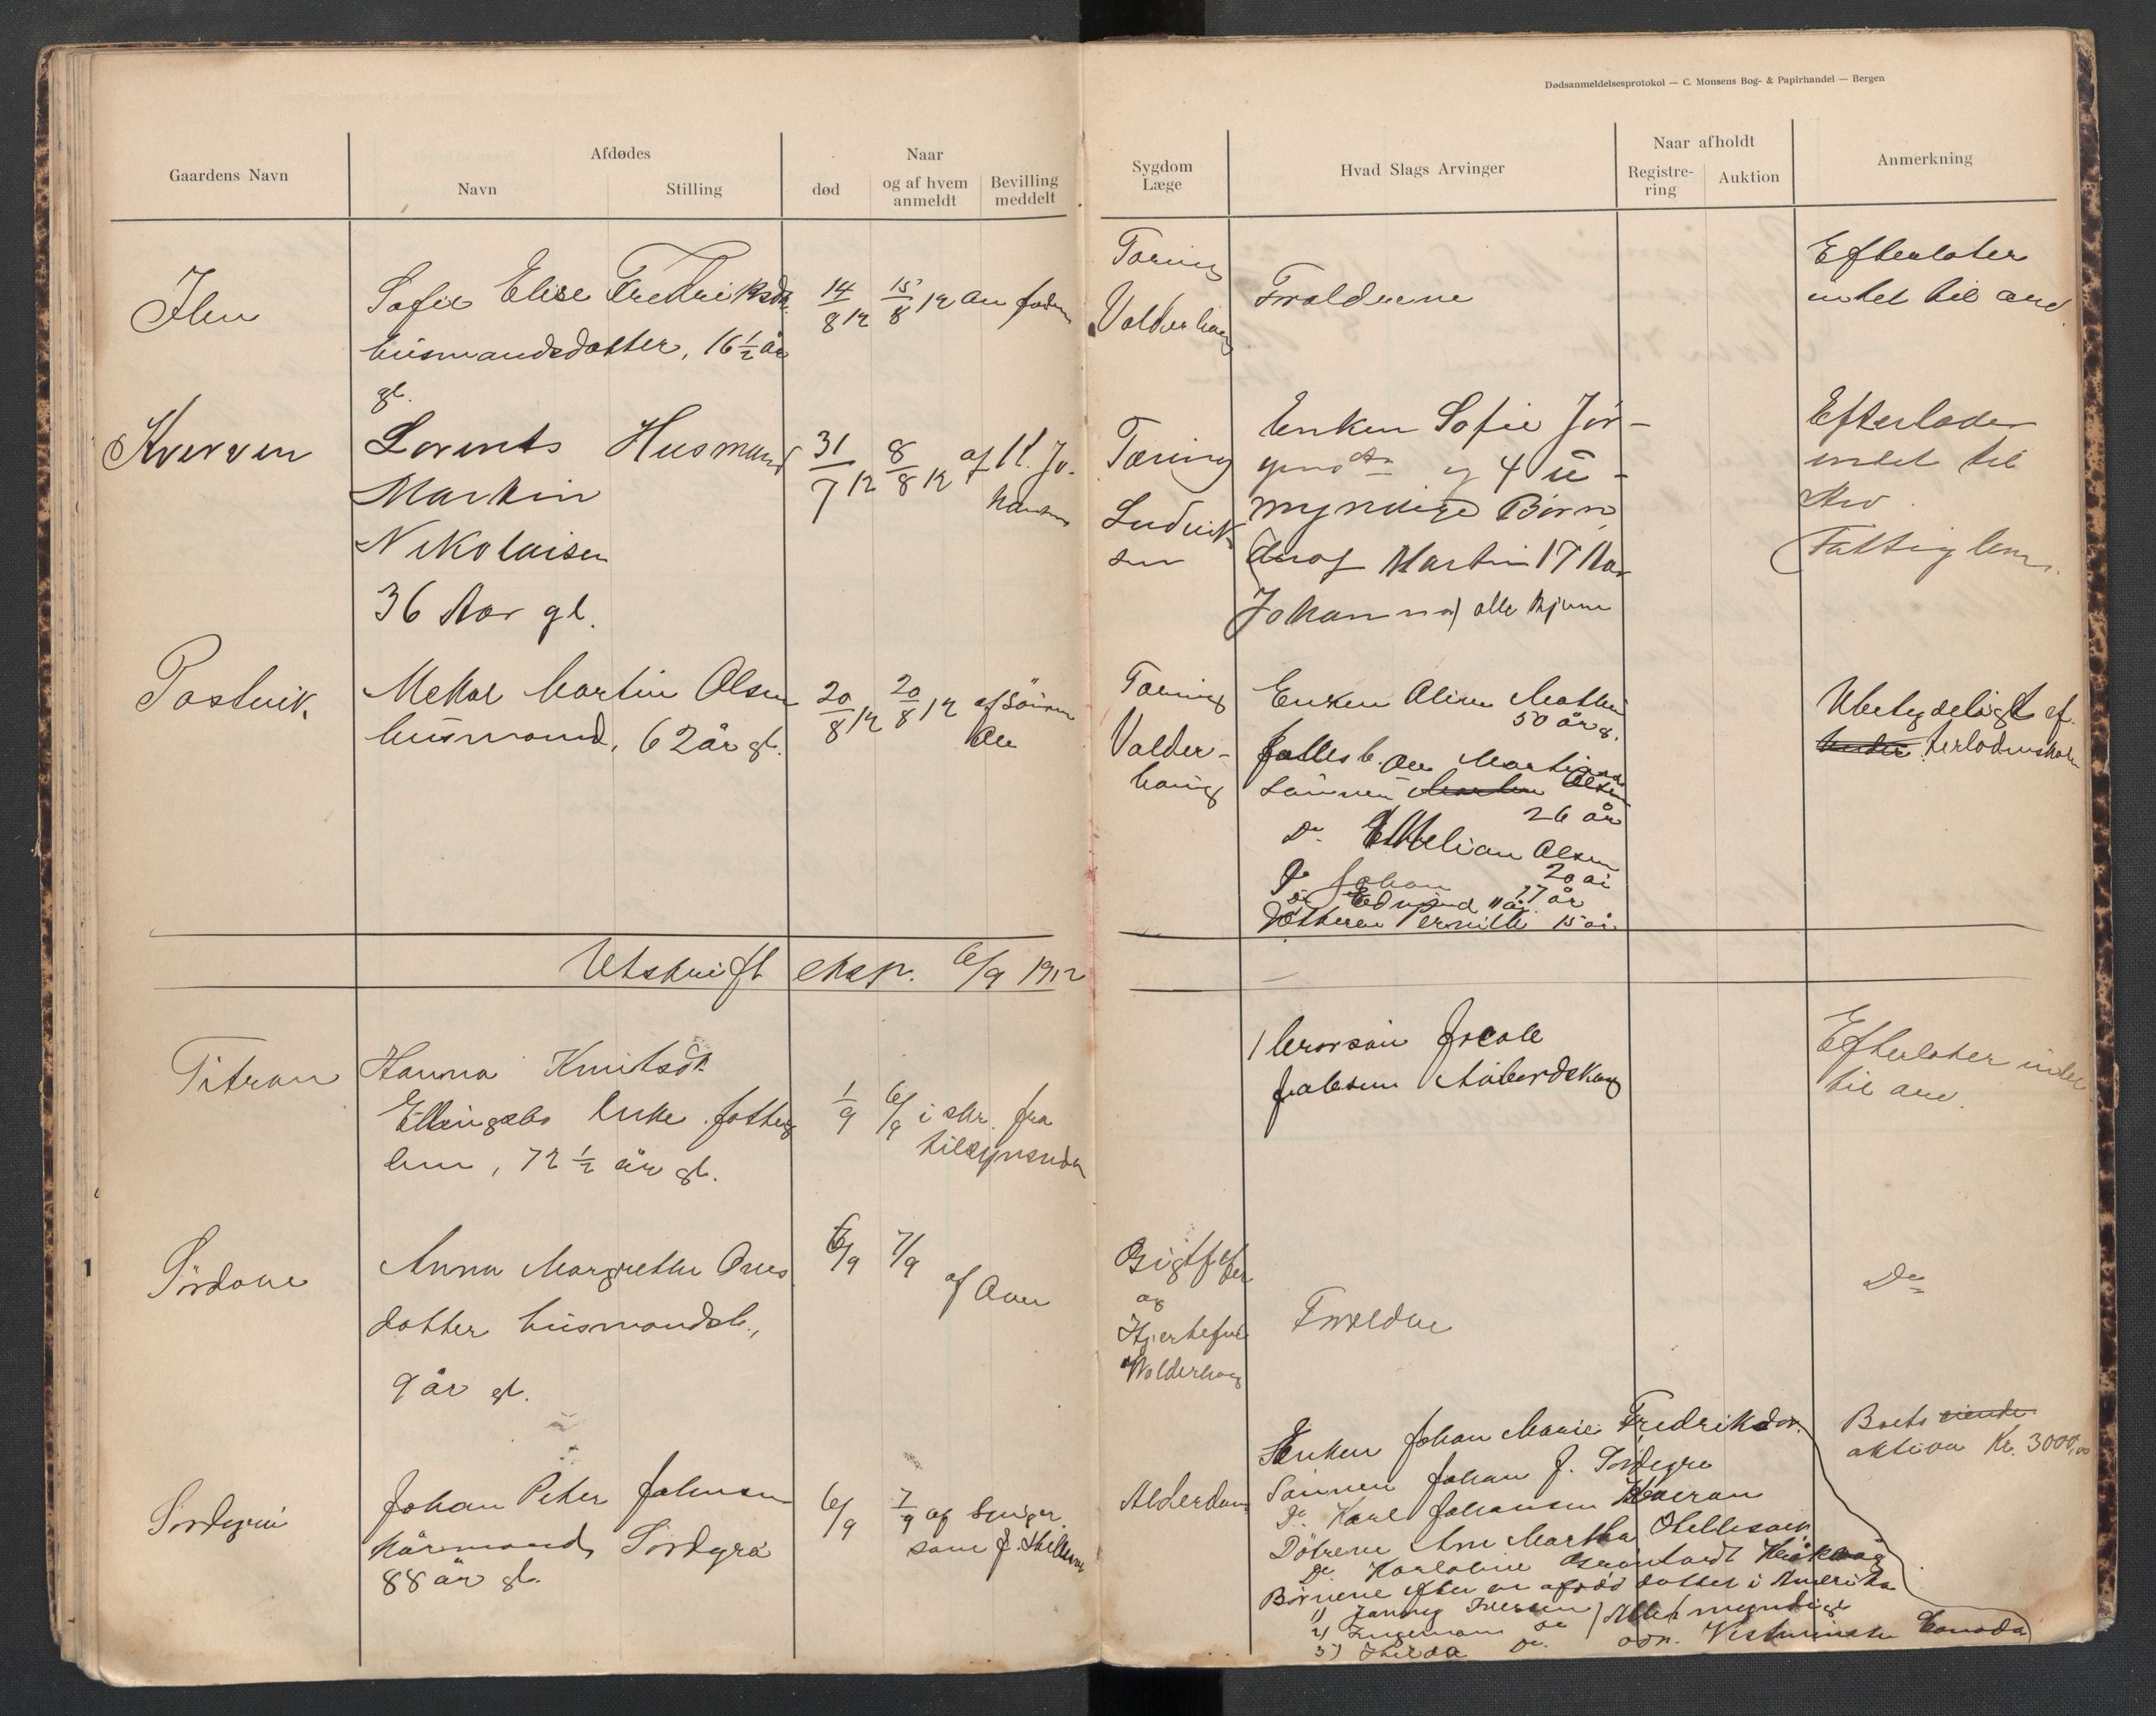 Dødsanmeldelsesprotokol — C. Monsens Bog- & Papirhandel — Bergen
Gaardens Navn
Afdødes
Navn
Stilling
Naar
død
og af hvem anmeldt
Bevilling meddelt
Sygdom
Læge
Hvad Slags Arvinger
Naar afholdt
Registrering
Auktion
Anmerkning
Sofie Elise Fredriksdtr.
husmandsdatter, 16 1/2 år
gl.
14/8 12
15/8 12 av faderen
Tæring
Valderhaug
Forældrene
Efterlater
intet til arv.
Kverven
Lorents Husmand
Martin
Nikolaisen
36 Aar gl.
31/7 12
8/8 12 af K. Jo-
hansen
Tæring
Ludvik
sen
Enken Sofie Jør-
gensdtr og 4 u-
myndige Børn
(hvoraf Martin 17 Aar
Johanna) alle hjemme
Efterlader
intet til
Arv.
Fattiglem.
Postvik.
Mekal Martin Olsen
husmand, 62 år gl.
20/8 12
20/8 12 af sønnen
Ole
Tæring
Valder-
haug
Enken Oline
50 år g.
fælles b. Ole Martin
Sønnen Olsen
26 år
Do. Olsen
20 år
Do Johan 17 år
Do Edvind 11 år.
Datteren Pernille 15 år.
Ubetydeligt ef-
terladenskab
Utskrift eksp. 6/9 1912
Titran
Hanna Knutsdtr
Enke fattig
lem, 72 1/2 år gl.
1/9
6/9 i skr. fra
tilsynsmd.
1 Brorsøn Jocab
Jakobsen
Efterlater intet
til arv.
Sørdove
Anna Margrethe Ovesdatter husmandsb.,
9 år gl.
6/9
7/9
af Ove
Gigtfeber
og
Hjertefeil
Valderhaug
Forældre
Do
Johan Peter Johnsen
kårmand, Sørdyrø
88 år gl.
6/9
7/9 af
Alderdom
Enken Johan Marie Fredriksdtr.
Sønnen Johan J. Sørdyrø
Do. Karl Johansen
Døtrene Ane Martha
Do Karoline
Børnene efter en afdød datter i Amerika
1) Iversen
2) Ingemann Do
3) Hilda Do.
Alle myndige
adr. Canada
Boets
aktiva Kr. 3000,00